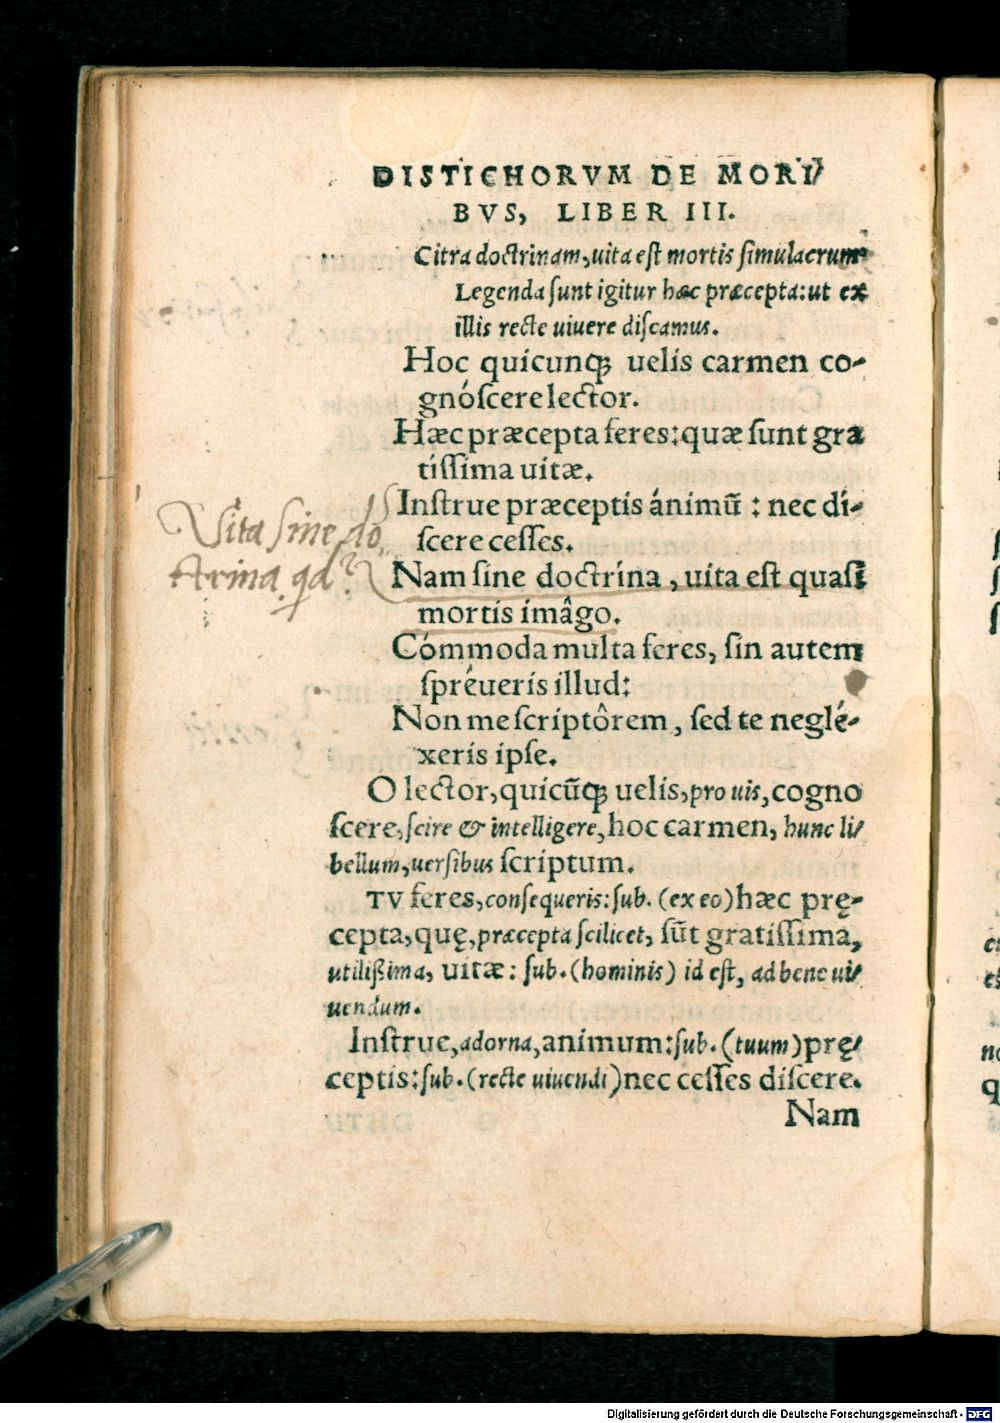 DISTICHORVM DE MORI/
BVS, LIBER III.
Citra doctrinam, uita est mortis simulacrum
Legenda sunt igitur hæc præcepta: ut ex
illis recte uiuere discamus.
Hoc quicunq; uelis carmen co-
gnóscere lector.
Hæc præcepta feres: quæ sunt gra
tissima uitæ.
Instrue præceptis ánimũ : nec di-
scere cesses.
Vita sine do,,
ctrina. qd?
Nam sine doctrína, uita est quasi
mortis imâgo.
Cómmoda multa feres, sin autem
spréueris illud:
Non me scriptôrem, sed te neglé-
xeris ipse.
O lector, quicũq; uelis, pro uis, cogno
scere, scire & intelligere, hoc carmen, hunc li/
bellum, uersibus scriptum.
TV feres, consequeris: sub. (ex eo) hæc prę-
cepta, quę, præcepta scilicet, sũt gratissima,
utilißima, uitæ: sub. (hominis) id est, ad bene ui/
uendum.
Instrue, adorna, animum: sub. (tuum) prę/
ceptis: sub. (recte uiuendi) nec cesses discere.
Nam
Digitalisierung gefördert durch die Deutsche Forschungsgemeinschaft - DFG